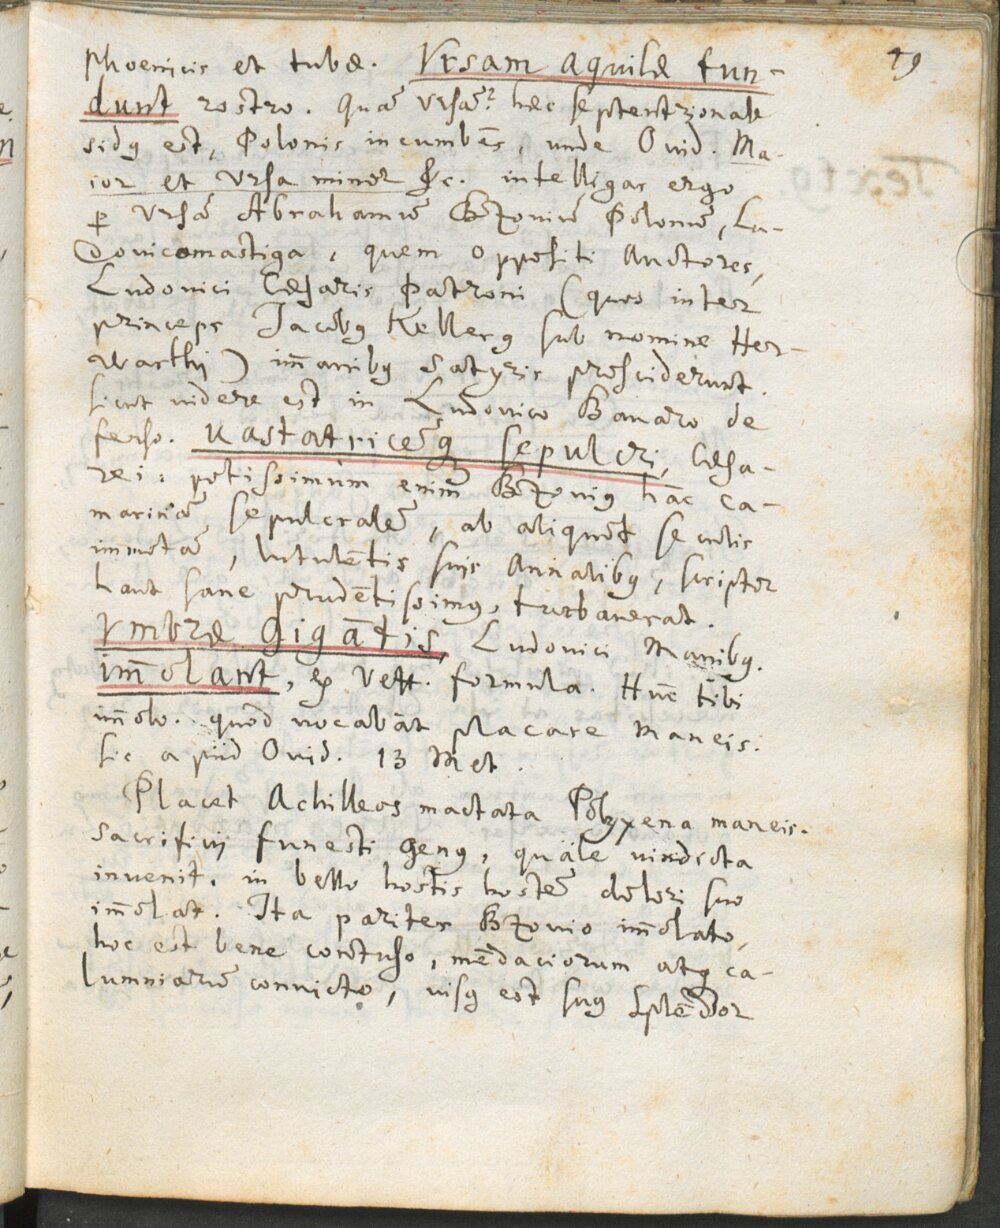 79
phoenicis et tubæ. Vrsam aquilæ fun-
dunt rostro. Quã Vrsã? hæc septentrionale
sidꝰ est, Polonis incumbẽs, unde Ovid. Ma-
ior et Ursa minor &c. intelligas ergo
ꝑ Ursã Abrahamũ Bzoviũ Polonũ, Lu-
dovicomastiga, quem oppositi Auctores,
Ludovici Cæsaris Patroni (quos inter
princeps Jacobꝰ Kellerꝰ sub nomine Her-
warthij) im̃anibꝰ satyris prosciderunt.
sicut videre est in Ludovico Bavaro de
fenso. Vastatricẽq sepulcri, Cæsa-
rei: potissimum enim Bzoviꝰ hãc ca-
marinã sepulcralẽ, ab aliquot seculis
immotã, lutulẽtis suis Annalibꝰ, scriptor
haut sane prudẽtissimꝰ, turbaverat.
Vmbræ Gigãtis, Ludovici Manibꝰ.
im̃olant, ex Vett. formula. Hũc tibi
im̃olo. quod vocabãt placare Maneis.
sic apud Ovid. 13 Met.
Placet Achilleos mactata Polyxena maneis.
sacrificij funesti genꝰ, quale vindicta
invenit. in bello hostis hostẽ dolori suo
im̃olat. Ita pariter Bzovio im̃olato,
hoc est bene contuso, mẽdaciorum atq ca-
lumniarũ convicto, visꝰ est suꝰ splẽdor